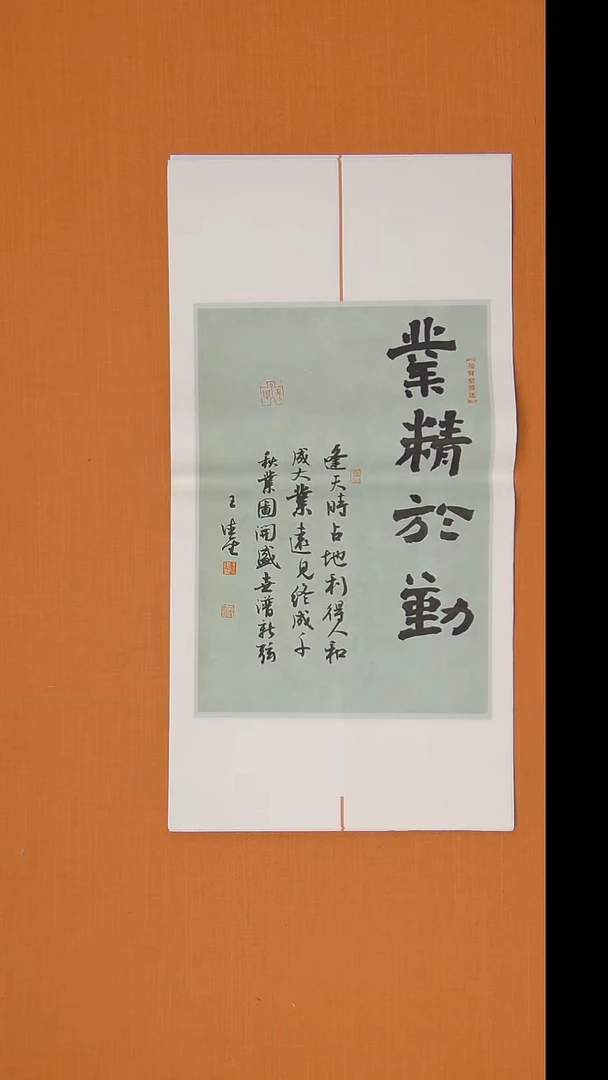 業精於勤
逢天時占地利得人和
成大業遠見終成千
秋業圖開盛世譜新弦
王